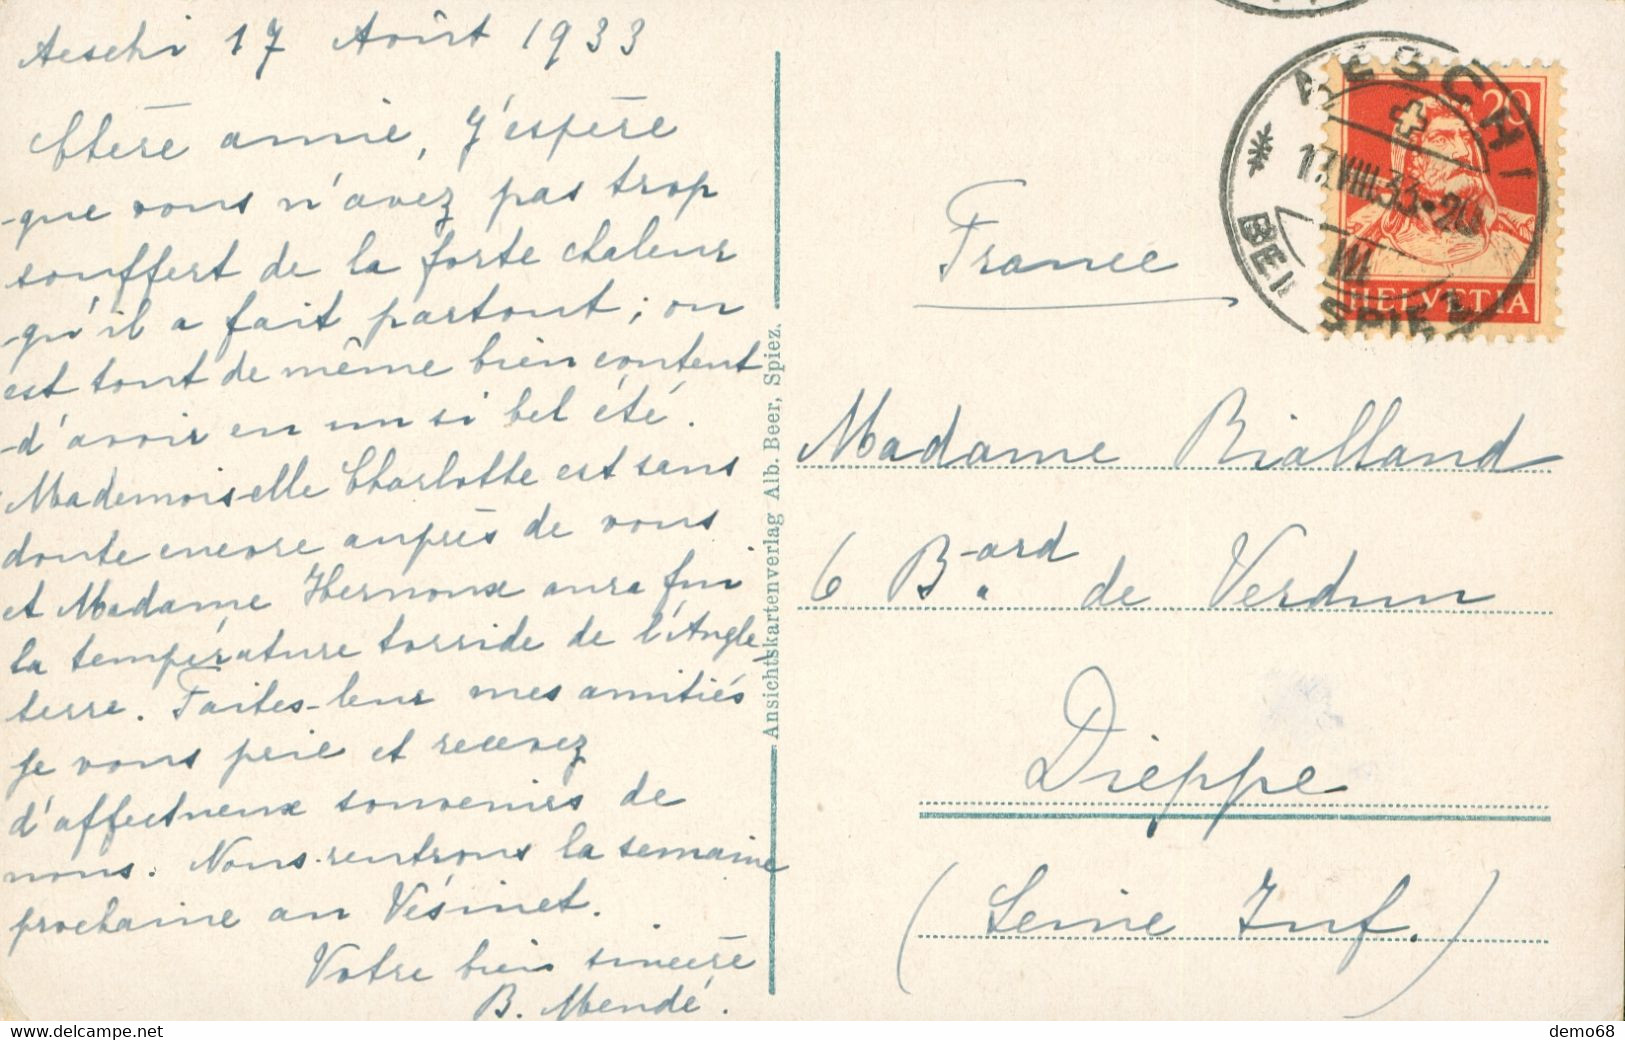 Aeschi 17 Août 1933
Chère amie, J'espère
que vous n'avez pas trop
souffert de la forte chaleur
qu'il a fait partout; on
est tout de même bien content
d'avoir eu un si bel été.
Mademoiselle Charlotte est sans
doute encore auprès de vous
et Madame Hernoux aura fui
la température torride de l'Angle
terre. Faites-leur mes amitiés
je vous prie et recevez
d'affectueux souvenirs de
nous. Nous rentrons la semaine
prochaine au Vésinet.
Votre bien sincère
B. Mendé.
Ansichtskartenverlag Alb. Beer, Spiez.
AESCHI
17.VIII.33.-20
BEI SPIEZ
20
HELVETIA
France
Madame Bialland
6 B.ard de Verdun
Dieppe
(Seine Inf.)
demo68
www.delcampe.net